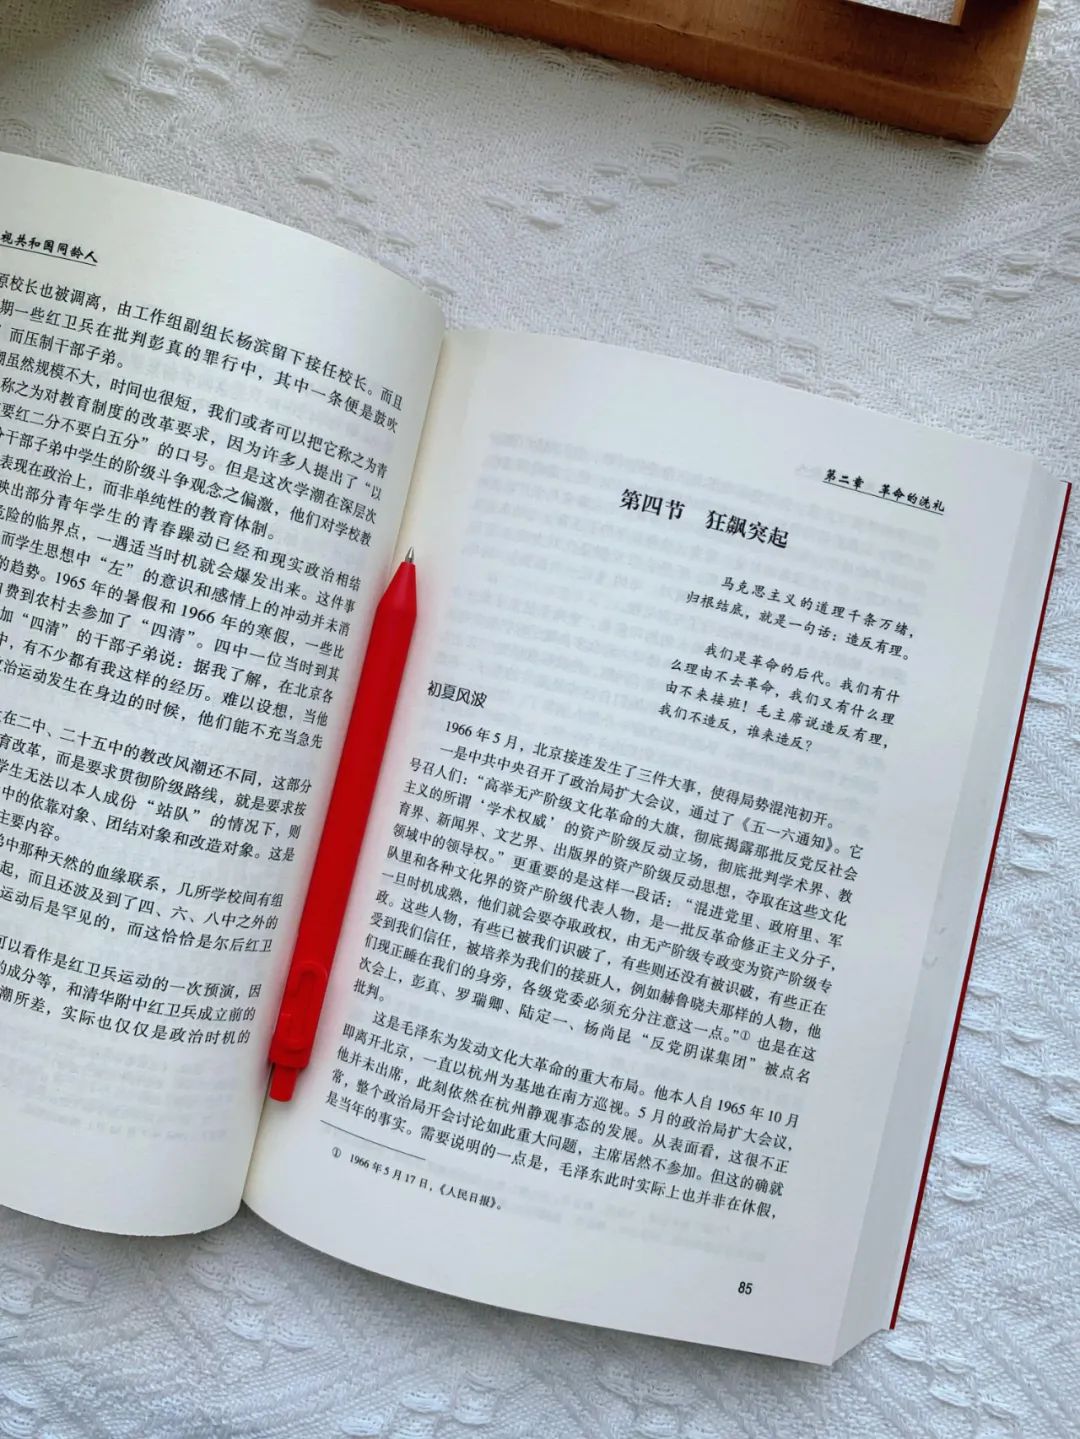 视共和国同龄人
原校长也被调离，由工作组副组长杨滨留下接任校长。而且
期一些红卫兵在批判彭真的罪行中，其中一条便是鼓吹
而压制干部子弟。
潮虽然规模不大，时间也很短，我们或者可以把它称之为青
称之为对教育制度的改革要求，因为许多人提出了“以
要红二分不要白五分”的口号。但是这次学潮在深层次
分干部子弟中学生的阶级斗争观念之偏激，他们对学校教
表现在政治上，而非单纯性的教育体制。
映出部分青年学生的青春躁动已经和现实政治相结
危险的临界点，一遇适当时机就会爆发出来。这件事
而学生思想中“左”的意识和感情上的冲动并未消
的趋势。1965年的暑假和1966年的寒假，一些比
费到农村去参加了“四清”。四中一位当时到其
加“四清”的干部子弟说：据我了解，在北京各
中，有不少都有我这样的经历。难以设想，当他
政治运动发生在身边的时候，他们能不充当急先
在二中、二十五中的教改风潮还不同，这部分
育改革，而是要求贯彻阶级路线，就是要求按
学生无法以本人成份“站队”的情况下，则
中的依靠对象、团结对象和改造对象。这是
主要内容。
弟中那种天然的血缘联系，几所学校间有组
起，而且还波及到了四、六、八中之外的
运动后是罕见的，而这恰恰是尔后红卫
可以看作是红卫兵运动的一次预演，因
的成分等，和清华附中红卫兵成立前的
潮所差，实际也仅仅是政治时机的
第二章 革命的洗礼
第四节 狂飙突起
马克思主义的道理千条万绪，
归根结底，就是一句话：造反有理。
我们是革命的后代。我们有什
么理由不去革命，我们又有什么理
由不来接班！毛主席说造反有理，
我们不造反，谁来造反？
初夏风波
1966年5月，北京接连发生了三件大事，使得局势混沌初开。
一是中共中央召开了政治局扩大会议，通过了《五一六通知》。它
号召人们：“高举无产阶级文化革命的大旗，彻底揭露那批反党反社会
主义的所谓‘学术权威’的资产阶级反动立场，彻底批判学术界、教
育界、新闻界、文艺界、出版界的资产阶级反动思想，夺取在这些文化
领域中的领导权。”更重要的是这样一段话：“混进党里、政府里、军
队里和各种文化界的资产阶级代表人物，是一批反革命修正主义分子，
一旦时机成熟，他们就会要夺取政权，由无产阶级专政变为资产阶级专
政。这些人物，有些已被我们识破了，有些则还没有被识破，有些正在
受到我们信任，被培养为我们的接班人，例如赫鲁晓夫那样的人物，他
们现正睡在我们的身旁，各级党委必须充分注意这一点。”①也是在这
次会上，彭真、罗瑞卿、陆定一、杨尚昆“反党阴谋集团”被点名
批判。
这是毛泽东为发动文化大革命的重大布局。他本人自1965年10月
即离开北京，一直以杭州为基地在南方巡视。5月的政治局扩大会议，
他并未出席，此刻依然在杭州静观事态的发展。从表面看，这很不正
常，整个政治局开会讨论如此重大问题，主席居然不参加。但这的确就
是当年的事实。需要说明的一点是，毛泽东此时实际上也并非在休假，
① 1966年5月17日，《人民日报》。
85